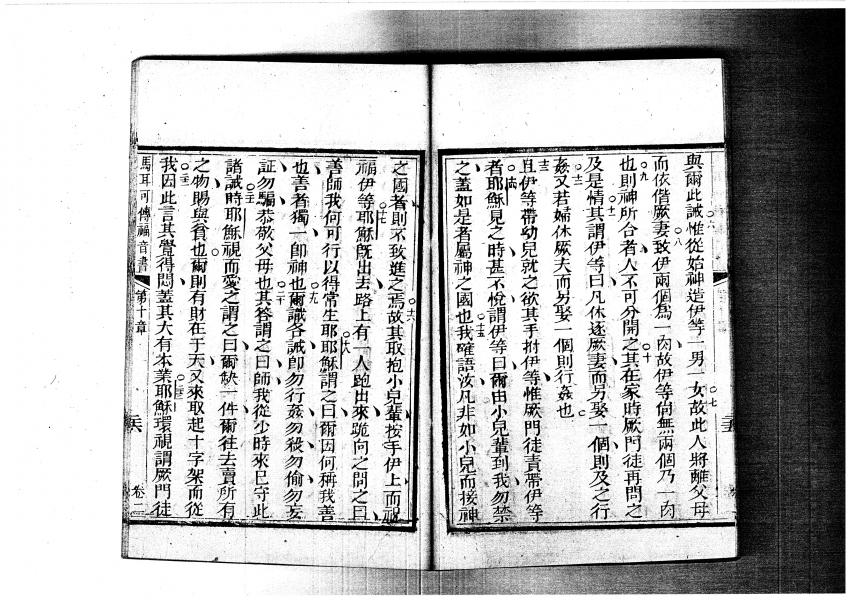 與爾此誡惟從始神造伊等一男一女故此人將離父母
而依偕厥妻致伊兩個為一肉故伊等尚無兩個乃一肉
也則神所合者人不可分開之其在家時厥門徒再問之
及是情其謂伊等曰凡休逐厥妻而另娶一個則及之行
姦又若婦休厥夫而另娶一個則行姦也
且伊等帶幼兒就之欲其手拊伊等惟厥門徒責帶伊等
者耶穌見之時甚不悅謂伊等曰爾由小兒輩到我勿禁
之蓋如是者屬神之國也我確語汝凡非如小兒而接神
之國者則不致進之焉故其取抱小兒輩按手伊上而祝
福伊等耶穌既出去路上有一人跑出來跪向之問之曰
善師我何可行以得常生耶耶穌謂之曰爾因何稱我善
也善者獨一即神也爾識各誡即勿行姦勿殺勿偷勿妄
証勿騙恭敬父母也其答謂之曰師我從少時來已守此
諸誡時耶穌視而愛之謂之曰爾缺一件爾往去賣所有
之物賜與貧也爾則有財在于天又來取起十字架而從
我因此言其覺得悶蓋其大有本業耶穌環視謂厥門徒
馬耳可傳福音書 第十章 卷二